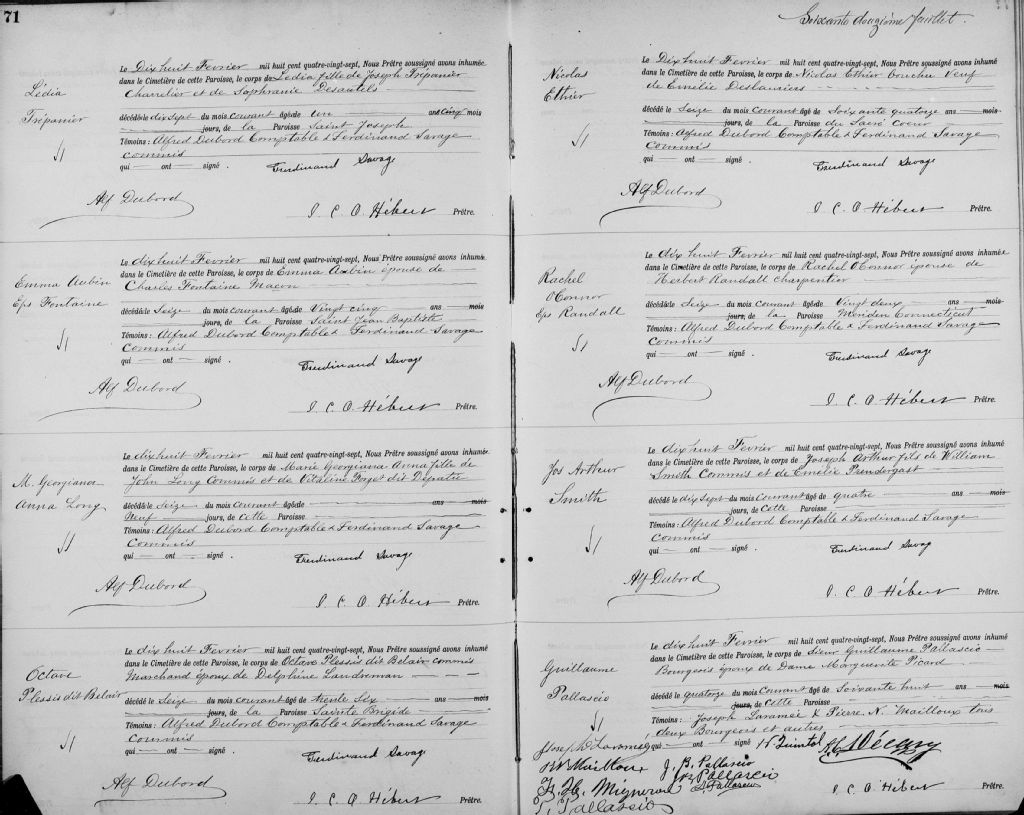 71
Lédia
Trépanier
Le Dix huit Fevrier mil huit cent quatre-vingt-sept, Nous Prêtre soussigné avons inhumée
dans le Cimetière de cette Paroisse, le corps de Ledia fille de Joseph Trépanier
Charretier et de Sophranie Desautels
décédé le dix sept du mois courant âgée de un ans cinq mois
jours, de la Paroisse Saint Joseph
Témoins : Alfred Dubord Comptable & Ferdinand Savage
Commis
qui — ont — signé .
Ferdinand Savage
Alf Dubord
J. C. O. Hébert Prêtre.
Emma Aubin
Eps Fontaine
Le dix huit Fevrier mil huit cent quatre-vingt-sept, Nous Prêtre soussigné avons inhumée
dans le Cimetière de cette Paroisse, le corps de Emma Aubin épouse de
Charles Fontaine Macon
décédée le Seize du mois courant âgée de Vingt cinq ans — mois
jours, de la Paroisse Saint Jean Baptiste
Témoins : Alfred Dubord Comptable & Ferdinand Savage
Commis
qui — ont — signé .
Ferdinand Savage
Alf Dubord
J. C. O. Hébert Prêtre.
M. Georgiana
Anna Long
Le dix huit Fevrier mil huit cent quatre-vingt-sept, Nous Prêtre soussigné avons inhumé
dans le Cimetière de cette Paroisse, le corps de Marie Georgiana Anna fille de
John Long Commis et de Vitaline Paget dit Dépatie
décédée le Seize du mois courant âgée de ans mois
Neuf jours, de Cette Paroisse
Témoins : Alfred Dubord Comptable & Ferdinand Savage
Commis
qui — ont — signé .
Ferdinand Savage
Alf Dubord
J. C. O. Hébert Prêtre.
Octave
Plessis dit Belair
Le dix huit Fevrier mil huit cent quatre-vingt-sept, Nous Prêtre soussigné avons inhumé
dans le Cimetière de cette Paroisse, le corps de Octave Plessis dit Belair commis
Marchand époux de Delphine Landreman
décédé le Seize du mois courant âgé de trente Six ans — mois
jours, de la Paroisse Sainte Brigide
Témoins : Alfred Dubord Comptable & Ferdinand Savage
Commis
qui — ont — signé .
Ferdinand Savage
Alf Dubord
J. C. O. Hébert Prêtre.
Soixante douzième feuillet.
Nicolas
Ethier
Le Dix huit Fevrier mil huit cent quatre-vingt-sept, Nous Prêtre soussigné avons inhumé
dans le Cimetière de cette Paroisse, le corps de Nicolas Ethier boucher Veuf
de Emélie Deslauriers
décédé le Seize du mois courant âgé de Soixante quatorze ans — mois
jours, de la Paroisse du Sacré Coeur
Témoins : Alfred Dubord Comptable & Ferdinand Savage
Commis
qui — ont — signé .
Ferdinand Savage
Alf Dubord
J. C. O. Hébert Prêtre.
Rachel
O'Connor
Eps Randall
Le dix huit Fevrier mil huit cent quatre-vingt-sept, Nous Prêtre soussigné avons inhumée
dans le Cimetière de cette Paroisse, le corps de Rachel O'Connor épouse de
Herbert Randall charpentier
décédée le Seize du mois courant âgée de Vingt deux ans — mois
jours, de la Paroisse Meriden Connecticut
Témoins : Alfred Dubord Comptable & Ferdinand Savage
Commis
qui — ont — signé .
Ferdinand Savage
Alf Dubord
J. C. O. Hébert Prêtre.
Jos Arthur
Smith
Le dix huit Fevrier mil huit cent quatre-vingt-sept, Nous Prêtre soussigné avons inhumé
dans le Cimetière de cette Paroisse, le corps de Joseph Arthur fils de William
Smith Commis et de Emélie Prendergast
décédé le dix Sept du mois courant âgé de quatre ans mois
jours, de Cette Paroisse
Témoins : Alfred Dubord Comptable & Ferdinand Savage
Commis
qui — ont — signé .
Ferdinand Savage
Alf Dubord
J. C. O. Hébert Prêtre.
Guillaume
Pallascio
Le dix huit Fevrier mil huit cent quatre-vingt-sept, Nous Prêtre soussigné avons inhumé
dans le Cimetière de cette Paroisse, le corps de Sieur Guillaume Pallascio
Bourgeois époux de Dame Marguerite Picard
décédé le quatorze du mois Courant âgé de Soixante huit ans — mois
jours, de Cette Paroisse
Témoins : Joseph Laramée & Pierre N. Mailloux tous
deux Bourgeois et autres
Joseph Laramée qui — ont — signé
P. N. Mailloux J. B. Pallascio
F. H. Migneron
Pallascio
Pallascio
T. Pallascio
J. C. O. Hébert Prêtre.